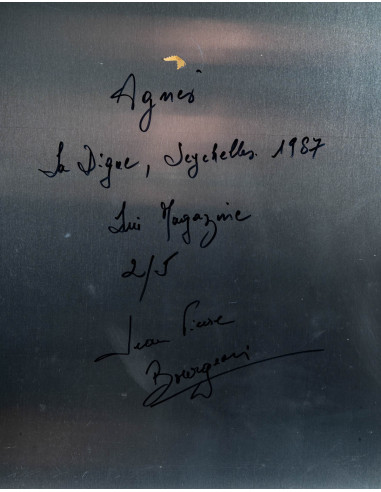 Agnes
La Digue, Seychelles. 1987
Lui Magazine
2/5
Jean Pierre
Bourgeois